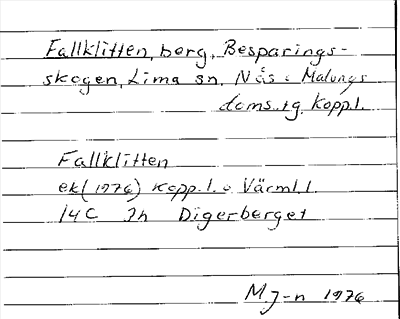 Fallklitten, berg, Besparings-
skogen, Lima sn, Nås o Malungs
doms.tg. Kopp.l.
Fallklitten
ek (1976) Kopp.l. o Värml.l.
14C Jh Digerberget
M.J-n 1976